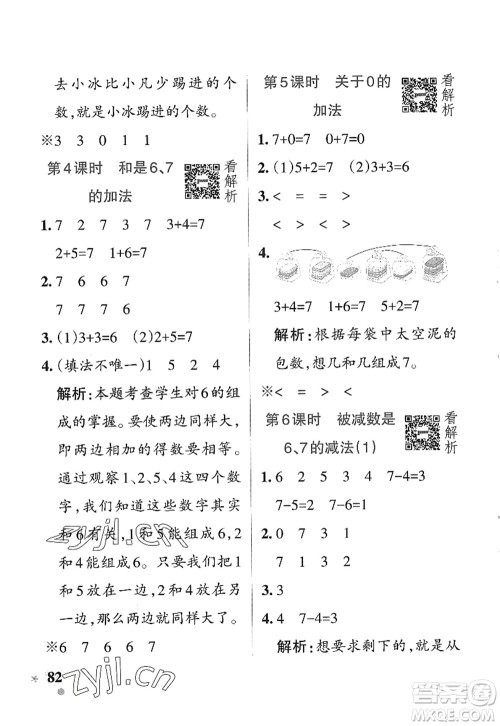 去小冰比小凡少踢进的个
数,就是小冰踢进的个数。
※3 3 0 1 1
第4课时 和是6、7
的加法
看解析
1. 7 2 7 3 7 3+4=7
2+5=7 1+6=7
2. 7 6 6 7
7 7 7 6
3. (1)3+3=6 (2)2+5=7
4. (填法不唯一)1 5 2 4
解析:本题考查学生对6的组
成的掌握。要使两边同样大,
即两边的得数要相等。
通过观察1、2、4、5这些数字,
我们发现这些数字其实和数
字6有关,1和5能组成6,2
和4能组成6。所以,只需将
1和5放在一边,2和4放在
另一边,那么两边就同样大了。
※6 7 6 6 7
82
第5课时 关于0的
加法
看解析
1. 7+0=7 0+7=7
2. (1)5+2=7 (2)3+3=6
3. < = > >
< > < >
4.
3+4=7 1+6=7 5+2=7
解析:根据每袋中太空泥的
包数,看哪两袋能组成7。
※< = > =
第6课时 被减数是
6、7的减法(1)
看解析
1. 6 2 5 7 7-4=3
7-5=2 7-1=6
2. 0 7 6 4
7 1 3 2
3. 3
4. 4 7-4=3
解析:想要求剩下的,就是从
zyjl.cn
zyjl.cn
答案圈
MXQE.COM